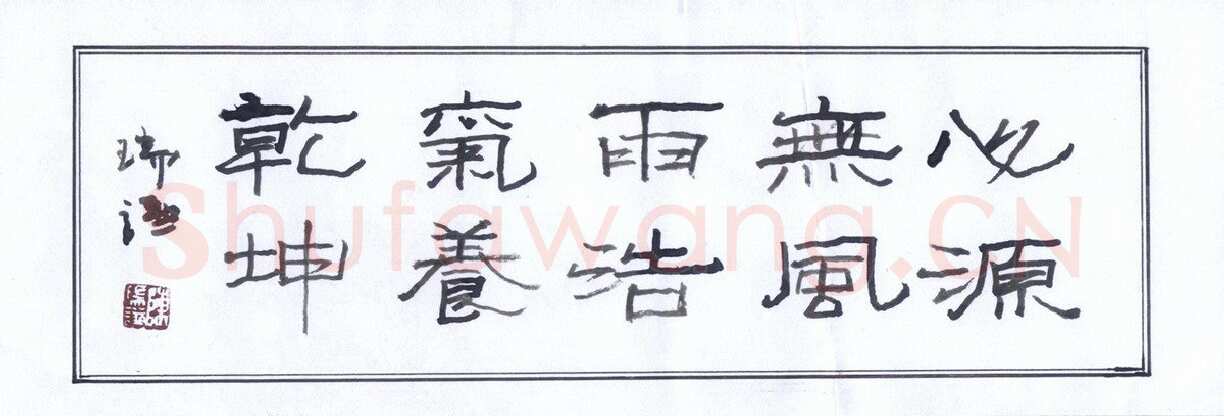 心源
無風
雨浩
氣養
乾坤
瑞
Shufawang.CN